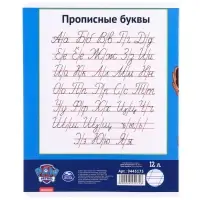 Прописные буквы
Аа Бб Вв Гг Дд
Ее Ёё Жж Зз Ии
Йй Кк Лл Мм Нн
Оо Пп Рр Сс Тт
Уу Фф Хх Цц Чч
Шш Щщ ъ ы ь
Ээ Юю Яя
12 л.